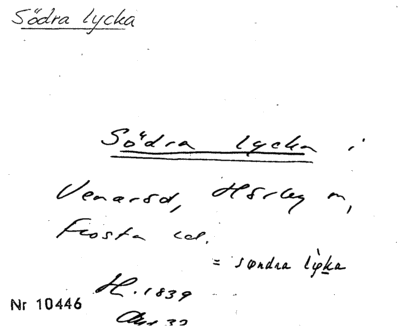 Södra lycka
Södra lycka i
Venaröd, Hörby m,
Frosta hd.
= søndra lÿcka
Nr 10446
H. 1839